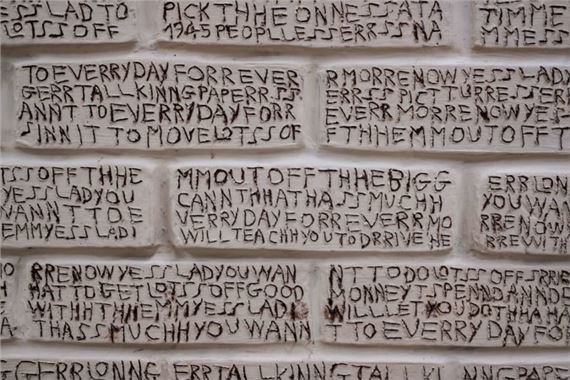 ESS LAD TO
LOTSS OFF
PICK THHE ONNESS ATA
1945 PEOPLLESS ERRSS NA
TIMME
MMESS
TO EVERRYDAY FORR EVER
GERR TALL KINNG PAPERR SS
ANNT TO EVERYDAY FORR
SINN IT TO MOVE LOTSS OF
RMORRE NOW YESS LADY
ERRSS PICTURRESS ERR
EVERR MORRE NOW YES
FTHHEMMOUT OFF T
TSS OFF THHE
YESS LADYOU
VANN TTO E
EMMYESS LADI
MMOUT OFF THHE BIGG
CANN THHATHASS MUCHH
VERRYDAY FORR EVERR MO
WILL TEACHHYOU TO DRRIVE HE
ERRLON
YOU WAN
RRE NOW
RRE WITH
RRE NOW YESS LADYOU WAN
HAT TO GET LOTSS OFF GOOD
WITHHTHHEMMYESS LADI
THASS MUCHHYOU WANN
NT TO DO LOTSS OFF
MONNEY TO SPENND ANN DO
WILLLET YOU DOTHHA HA
T TO EVERRY DAY FOR
GERRLONNG
ERRTALL KINNG TALL KI
NNG PAPE